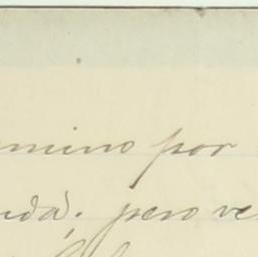 mino por
nda; pero ve